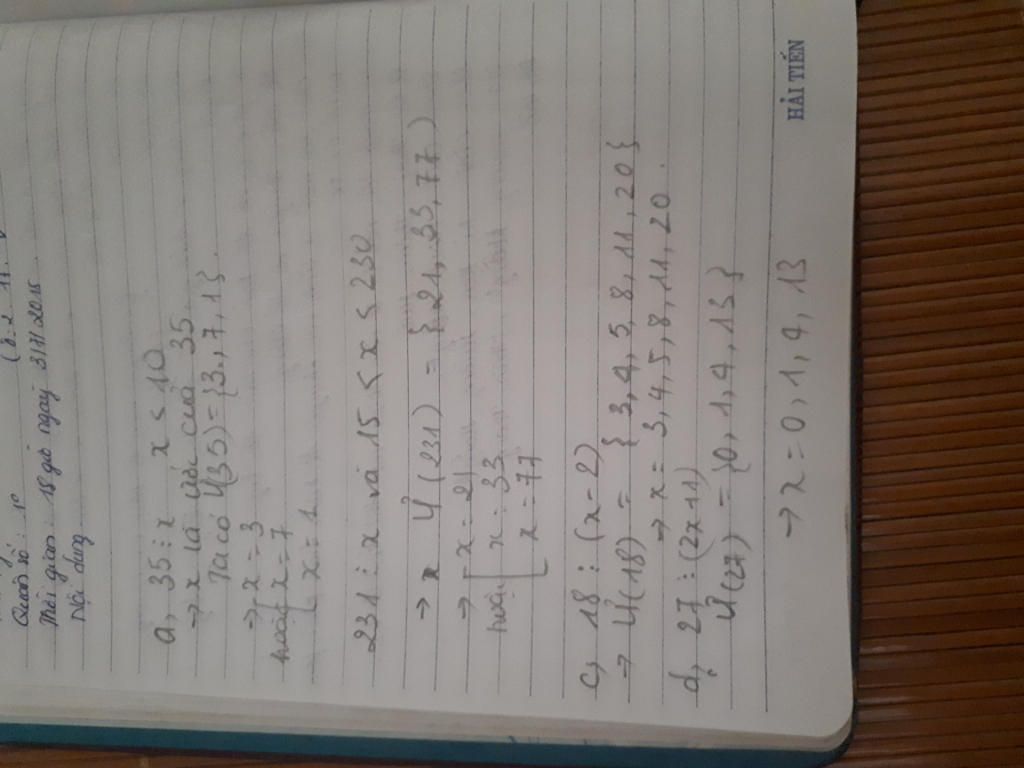 Quân số: 1
Thời gian: 18 giờ ngày 31.7.2015
Nội dung
a, 35 ⋮ x x < 10
→ x là ước của 35
Ta có Ư(35) = {3, 7, 1}.
→ x = 3
hoặc x = 7
x = 1
231 ⋮ x và 15 < x < 230
→ x Ư(231) = {21, 33, 77)
→ x = 21
hoặc x = 33
x = 77
c, 18 ⋮ (x-2)
→ Ư(18) = {3, 4, 5, 8, 11, 20}
→ x = 3, 4, 5, 8, 11, 20.
d, 27 ⋮ (2x+1)
Ư(27) = {0, 1, 4, 13}
→ x = 0, 1, 4, 13
HẢI TIẾN